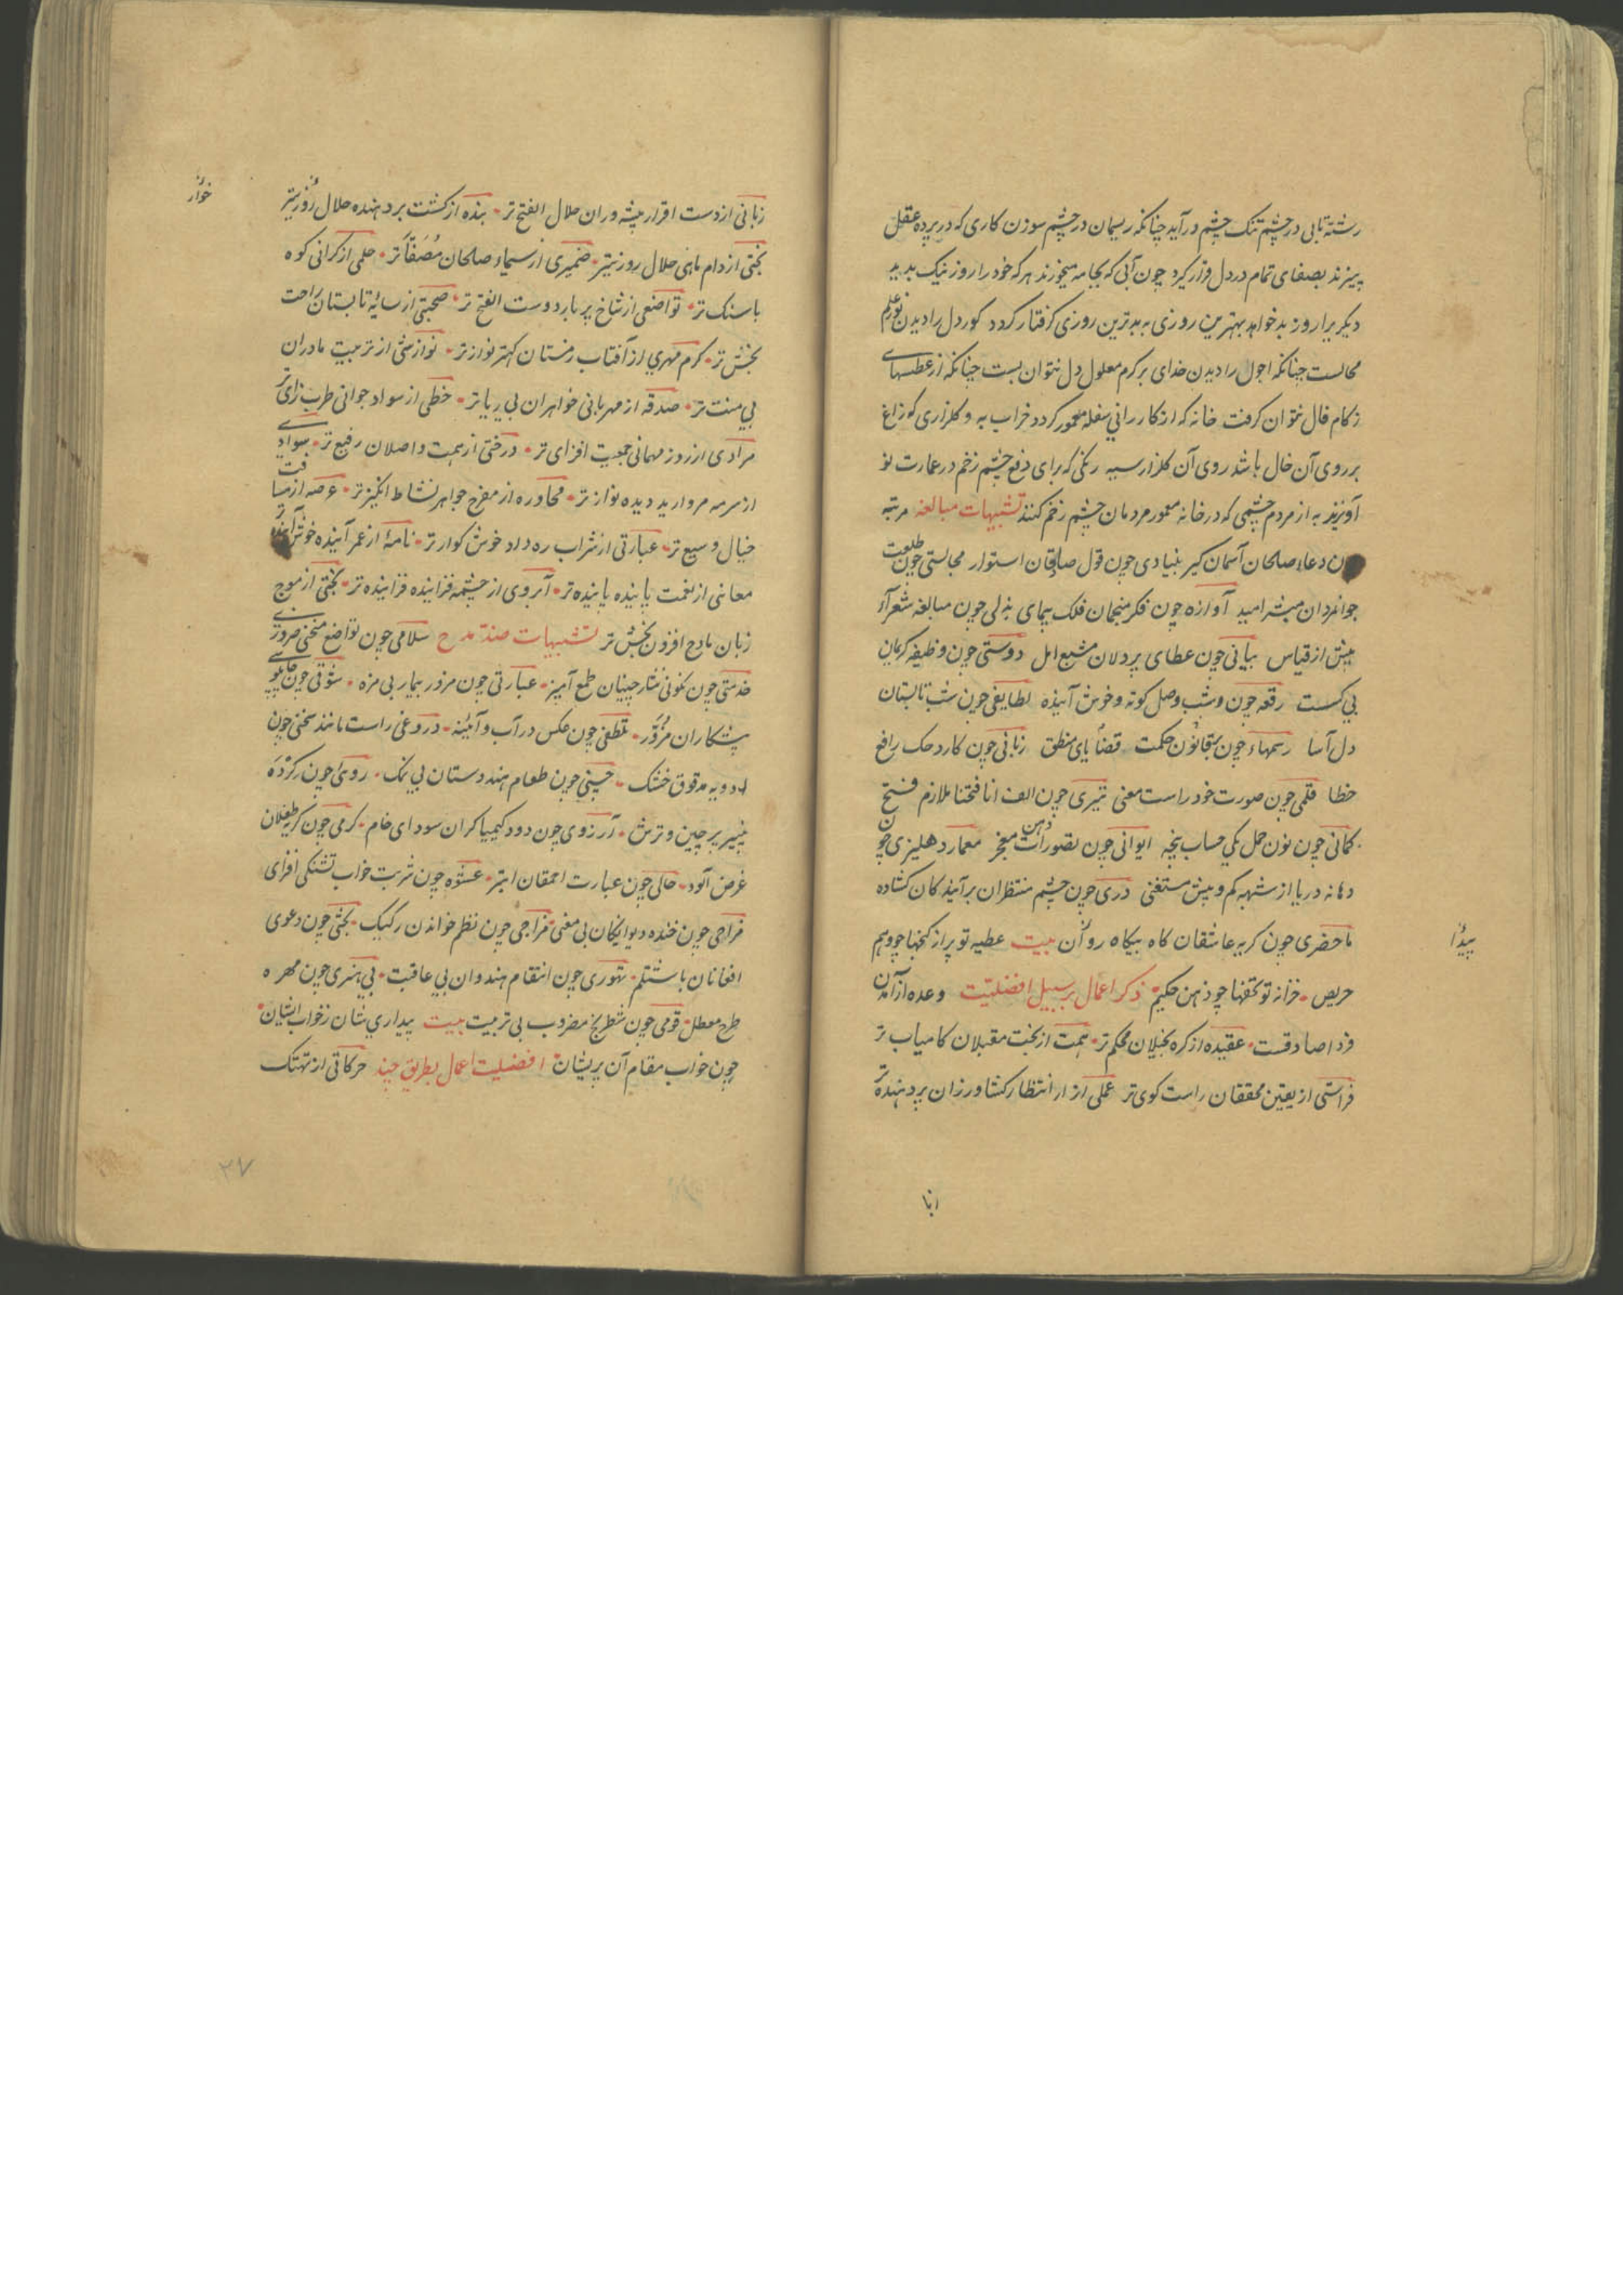 رشته تابی در چشم تنک چشم در آید چنانکه ریسمان در چشم سوزن کاری که در پرده عقل
پیزند بصفای تمام در دل قرار کیرد چون آبی که بجامه میخورند هر که خود را روز نیک بدید
دیکر برا روز بد خواهد بهترین روزی به بدترین روزی کرفتار کردد کور دل را دیدن نور علم
محالست چنانکه احول را دیدن خدای بر کرم معلول دل نتوان بست چنانکه از عطسهای
زکام فال نتوان کرفت خانه که از کار رانی سفله معمور کردد خراب به و کلزاری که زاغ
بر روی آن خال باشد روی آن کلزار سیه رنکی که برای دفع چشم زخم در عمارت نو
آویزند به از مردم چشمی که در خانه معمور مردمان چشم زخم کنند تشبیهات مبالغه مرتبه
چون دعاء صلحان آسمان کیر بنیادی چون قول صادقان استوار مجالستی چون طلعت
جوانمردان مبشر امید آوازه چون فکر منجمان فلک پیمای بذلی چون مبالغه شعر از
بیش از قیاس بیانی چون عطای پر دلان مشبع امل دوستی چون وظیفه کریمان
بی کسست رقعه چون وشب وصل کوته و خوش آینده لطایفی چون شب تابستان
دل آسا رسمهاء چون بقانون حکمت قضایای منطق زبانی چون کارد حک رافع
خطا قلمی چون صورت خود راست معنی تیری چون الف انا فتحنا ملازم فتح
کمانی چون نون حمل یکی حساب پنجه ایوانی چون تصورات ذهن معمار دهلیزی چون
دهانه دریا از شبهه کم و بیش مستغنی دری چون چشم منتظران بر آمیند کان کشاده
ما حضری چون کریه عاشقان کاه بیکاه روان بیت عطیه تو پر از کنجها چو وهم
حریص خزانه تو تحفها چو ذهن حکیم ذکر اعمال بر سبیل افضلیت وعده از آمدن
فردا صادقست عقیده از کره بخیلان محکم تر همت از بخت مقبلان کامیاب تر
فراستی از یقین محققان راست کوی تر عملی از انتظار کشاورزان بر دهنده تر
پیدا
ابنا
زبانی از دست اقرار پیشه وران حلال الفتح تر بنده از کشت بر دهنده حلال روز یتر
بختی از دام ماهی حلال روزیتر ضمیری از سیماء صلحان مصفا تر حلمی از کرانی کوه
با سنک تر تواضعی از شاخ پر بار دوست الفتح تر صحبتی از سایه تابستان راحت
بخش تر کرم مهری از آفتاب زمستان کهتر نواز تر نوازشی از تربیت مادران
بی منت تر صدقه از مهربانی خواهران بی ریا تر خطی از سواد جوانی طرب زای تر
مرادی از روز مهمانی جمعیت افزای تر درختی از همت واصلان رفیع تر سوادی
از سرمه مروارید دیده نواز تر محاوره از مفرح جواهر نشاط انکیز تر عرصه از مسافت
خیال وسیع تر عبارتی از شراب ره داد خوش کوار تر نامهٔ از عمر آینده خوش آینده تر
معانی از نعمت پاینده پاینده تر آبروی از چشمه فزاینده فزاینده تر بختی از موج
زبان مادح افزون بخش تر تشبیهات ضد مدح سلامی چون تواضع منحنی ضروری
خدمتی چون نکونی نثار چینان طمع آمیز عبارتی چون مزور بیمار بی مزه شوقی چون چاپلوسی
پشکاران مزور تلطفی چون عکس در آب و آیینه دروغی راست مانند سخنی چون
ادویه مدقوق خشک چسپی چون طعام هندوستان بی نمک روئی چون کرده
پنیر پر چین و ترش آرزوی چون دود کیمیا کران سودای خام کرمی چون کریه طفلان
غرض آلود حالی چون عبارت احمقان ابتر عشوه چون شربت خواب تشنکی افزای
مزاحی چون خنده دیوانکان بی معنی مزاجی چون نظم خواندن رکیک بختی چون دعوی
افغانان با شتلم تهوری چون انتقام هندوان بی عاقبت بی هنری چون مهره
طرح معطل قومی چون شطرنج مضروب بی تربیت بیت بیداری شان ز خواب ایشان
چون خواب مقام آن پریشان افضلیت اعمال بطریق چند حرکاتی از تهتک
خوار
۳۷